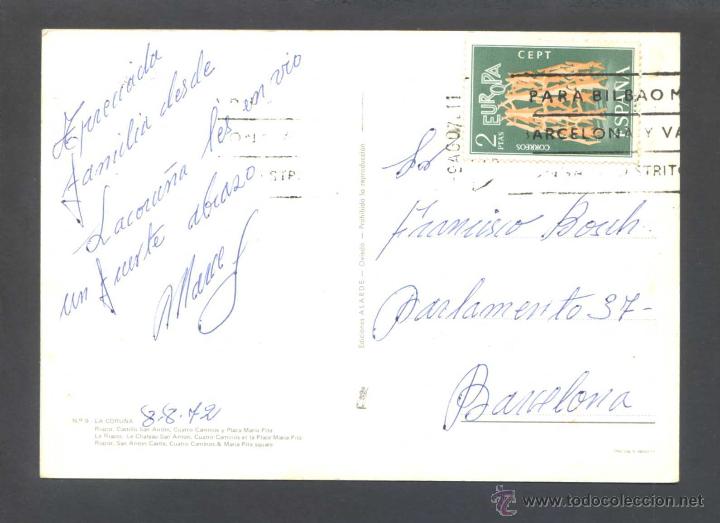 Apreciada
familia desde
Lacoruña les en vio
un fuerte abrazo
8-8-72
Nº 9 - LA CORUÑA
Riazor, Castillo San Antón, Cuatro Caminos y Plaza María Pita
Le Riazor, Le Chateau San Anton, Cuatro Caminos et la Place Maria Pita
Riazor, San Anton Castle, Cuatro Caminos & Maria Pita square
Ediciones ALARDE - Oviedo - Prohibida la reproducción
CEPT
EUROPA
2 PTAS
CORREOS
ESPAÑA
PARA BILBAO M
BARCELONA Y VA
DISTRITO
Sr
Francisco Bosch
Parlamento 37-
Barcelona
© www.todocoleccion.net